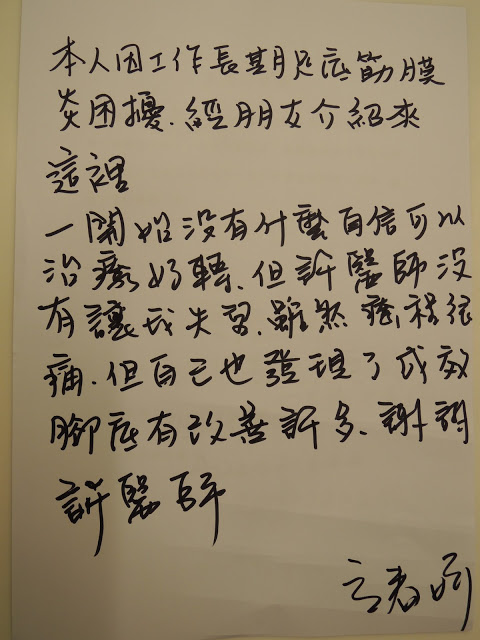 本人因工作長期足底筋膜
炎困擾.經朋友介紹來
這裡
一開始沒有什麼自信可以
治療好轉.但許醫師沒
有讓我失望.雖然療程很
痛.但自己也發現了成效
腳底有改善許多.謝謝
許醫師